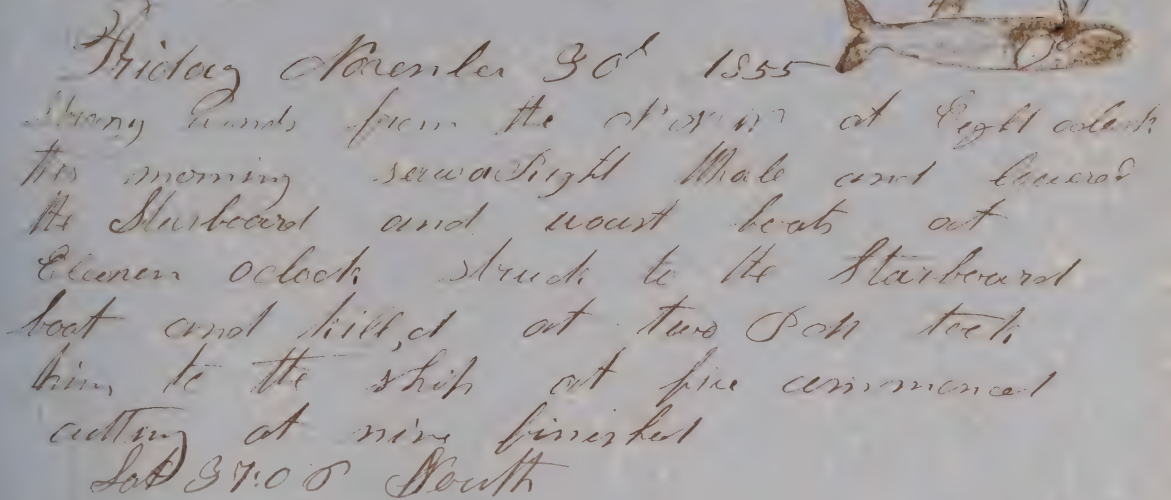 Friday November 30d 1855
Strong winds from the at Eight oclock
this morning saw a Right Whale and lowered
the Starboard and waist boats at
Elemen oclock struck to the Starboard
boat and kill,d at two P M took
him to the ship at five commenced
cutting at nine finished
Lat 37:08 South